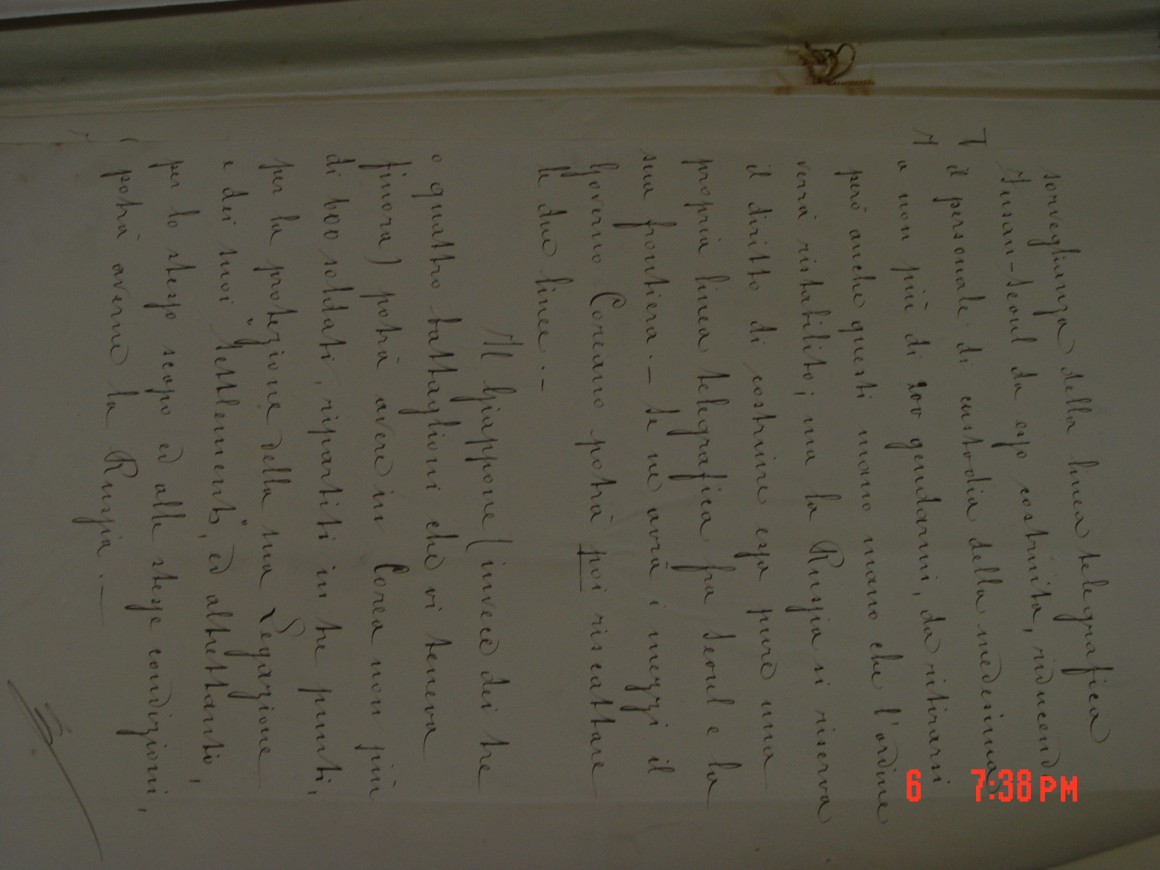 sorveglianza della linea telegrafica
Fusan-Seoul da esso costruita, riducendo
il personale di custodia della medesima,
a non più di 200 gendarmi, da ritirarsi
però anche questi mano mano che l'ordine
verrà ristabilito; ma la Russia si riserva
il diritto di costruire essa pure una
propria linea telegrafica fra Seoul e la
sua frontiera. — Se ne avrà i mezzi il
Governo Coreano potrà poi riscattare
le due linee. —
Il Giappone (invece dei tre
o quattro battaglioni che vi teneva
finora) potrà avere in Corea non più
di 600 soldati, ripartiti in tre punti,
per la protezione della sua Legazione
e dei suoi "settlements", ed altrettanti,
per lo stesso scopo ed alle stesse condizioni,
potrà averne la Russia. —
6 7:38 PM